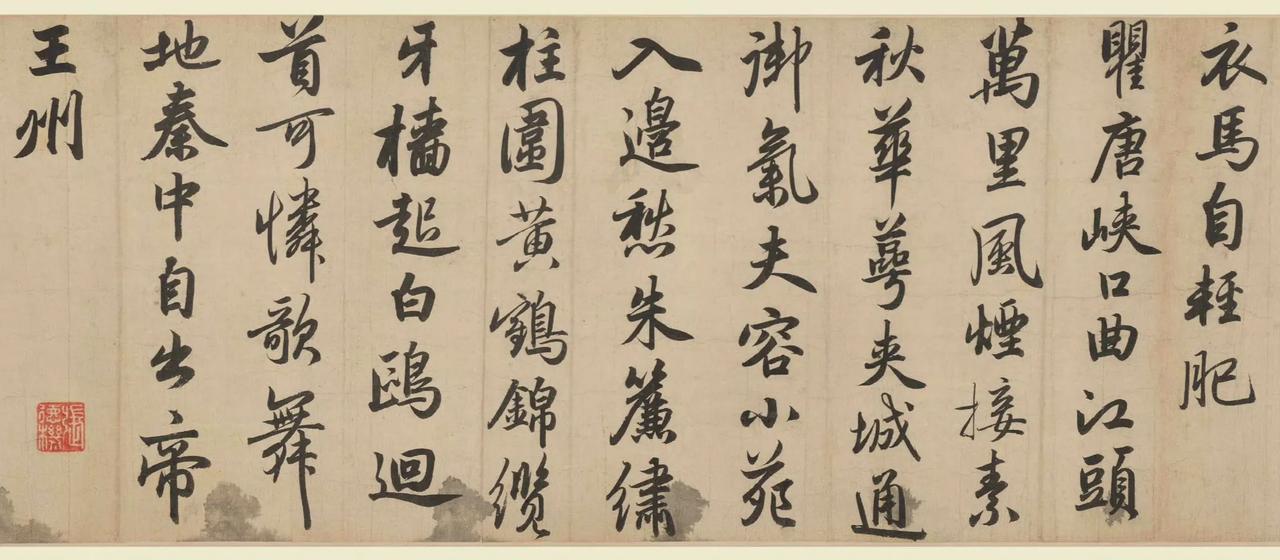 衣馬自輕肥
瞿唐峽口曲江頭
萬里風煙接素
秋華萼夾城通
御氣夫容小苑
入邊愁朱簾繡
柱圍黃鶴錦纜
牙檣起白鷗迴
首可憐歌舞
地秦中自出帝
王州